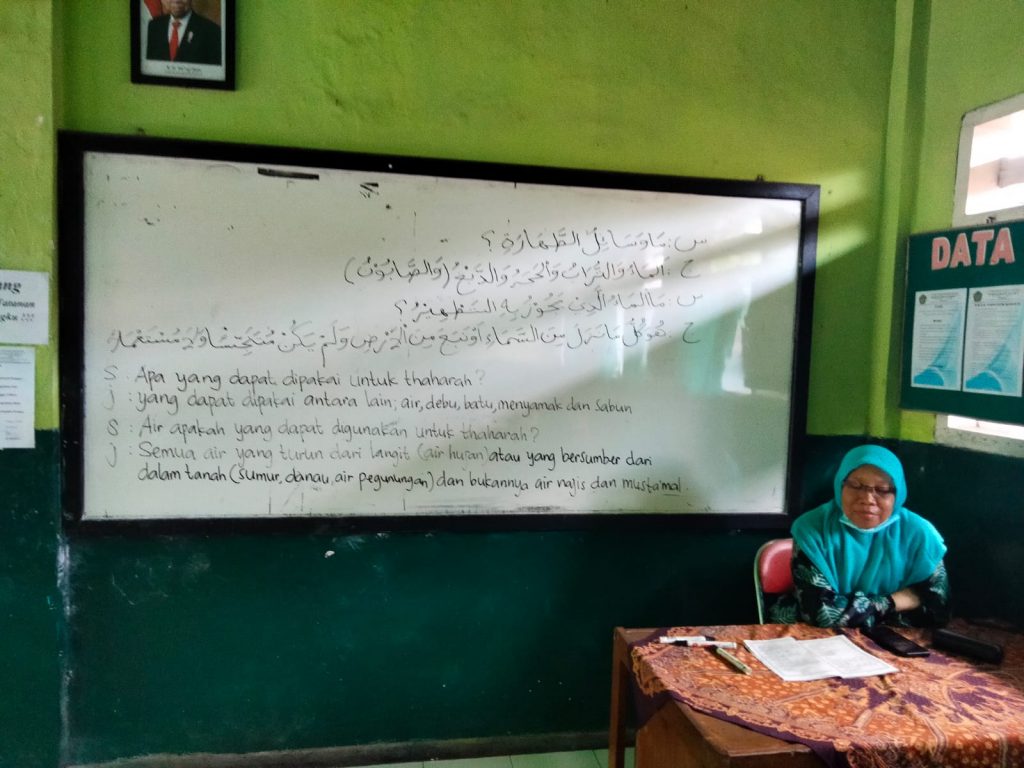 س : مَا وَسَائِلُ الطَّهَارَةِ ؟
ج : اَلْمَاءُ وَالتُّرَابُ وَالْحَجَرُ وَالدَّبْغُ (وَالصَّابُوْنُ)
س : مَا الْمَاءُ الَّذِيْ يَجُوْزُ بِهِ التَّطْهِيْرُ ؟
ج : هُوَ كُلُّ مَا نَزَلَ مِنَ السَّمَاءِ اَوْ نَبَعَ مِنَ الْاَرْضِ وَلَمْ يَكُنْ مُتَنَجِّسًا وَلَا مُسْتَعْمَلًا
S : Apa yang dapat dipakai untuk thaharah?
j : yang dapat dipakai antara lain; air, debu, batu, menyamak dan sabun
S : Air apakah yang dapat digunakan untuk thaharah?
j : Semua air yang turun dari langit (air hujan) atau yang bersumber dari
dalam tanah (sumur, danau, air pegunungan) dan bukannya air najis dan musta'mal.
DATA